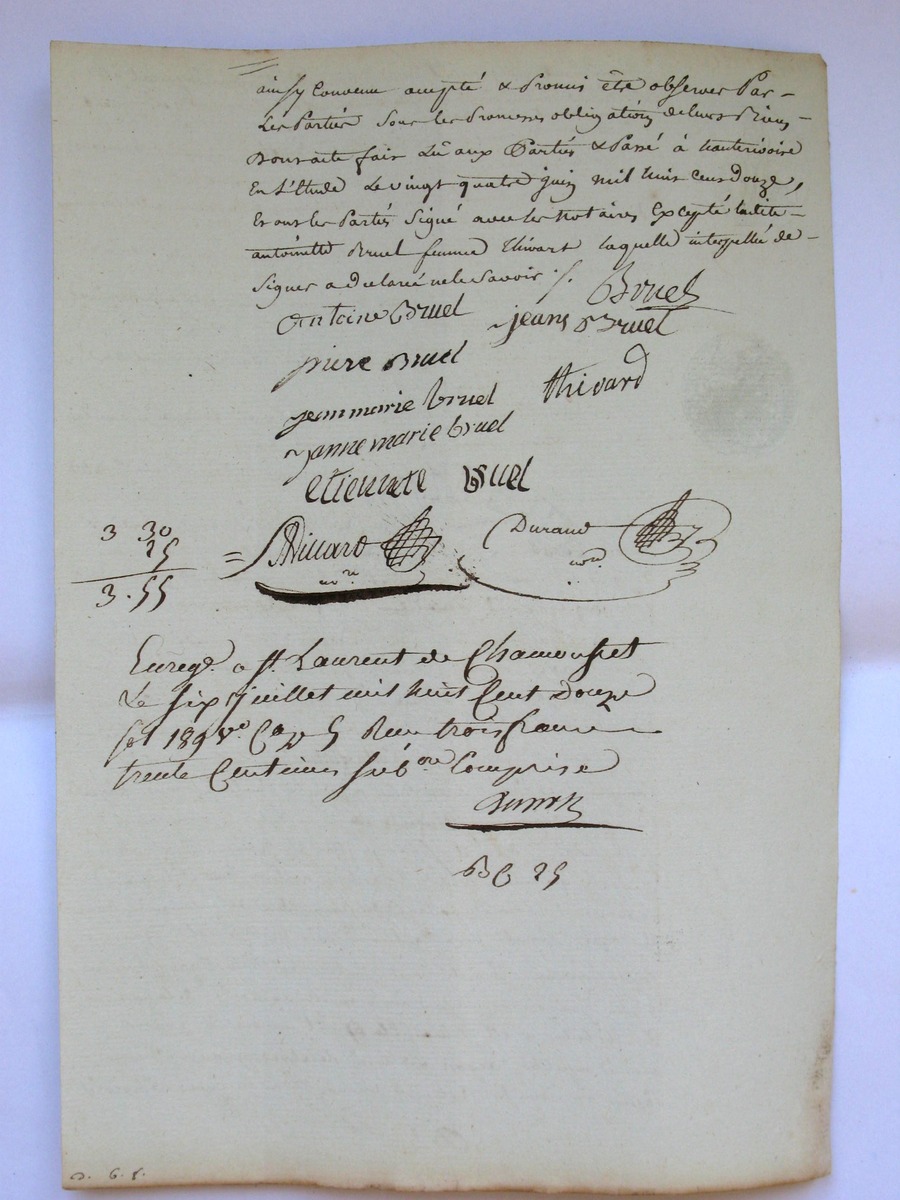 ainsy Convenu accepté & Promis être observer Par –
Les Parties Sous les Promesses obligations de leurs Biens –
Dont acte fait Lu aux Parties & Passé à hauterivoire
En L'Etude Le vingt quatre juin mil huit cent Douze,
Et ont les Parties Signé avec les Notaires Excepté ladite –
antoinette Bruel femme thivart laquelle interpellée de –
Signer a déclaré ne le Savoir ./.
Bruel
Antoine Bruel
jeans Bruel
piere Bruel
thivard
jeanmarie bruel
janne marie bruel
etienne bruel
3 30
25
3.55
= Durand
nore
Enregé a St. Laurent de Chamousset
Le six juillet mil huit Cent Douze
fol 189 vo Case 5 Reçu trois francs
trente Centimes subon Comprise
BC 25